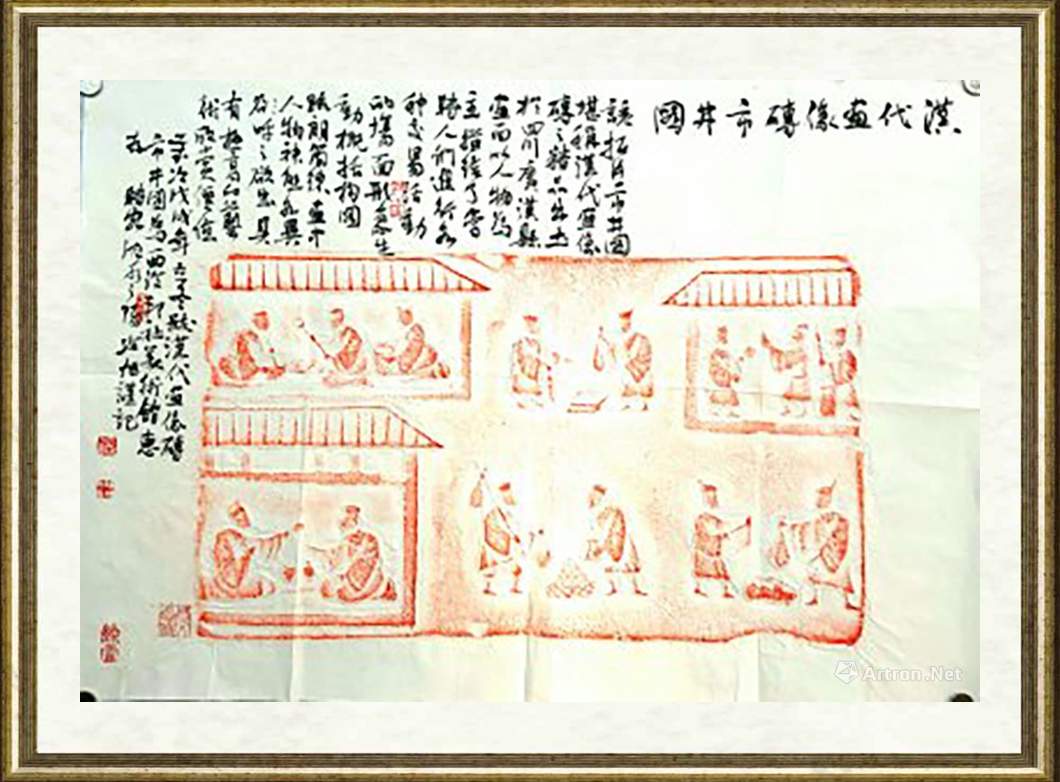 漢代畫像磚市井圖
該拓片市井圖
堪稱漢代畫像
磚之精品出土
於四川廣漢縣
畫面以人物為
主描繪了當
時人們進行各
種交易活動
的場面形象生
動概括構圖
疏朗簡練畫中
人物神態各異
呼之欲出具
有極高的藝
術價值
戊戌年漢代畫像磚
市井圖為西泠印社美術館惠
存 謹記
Artron.Net